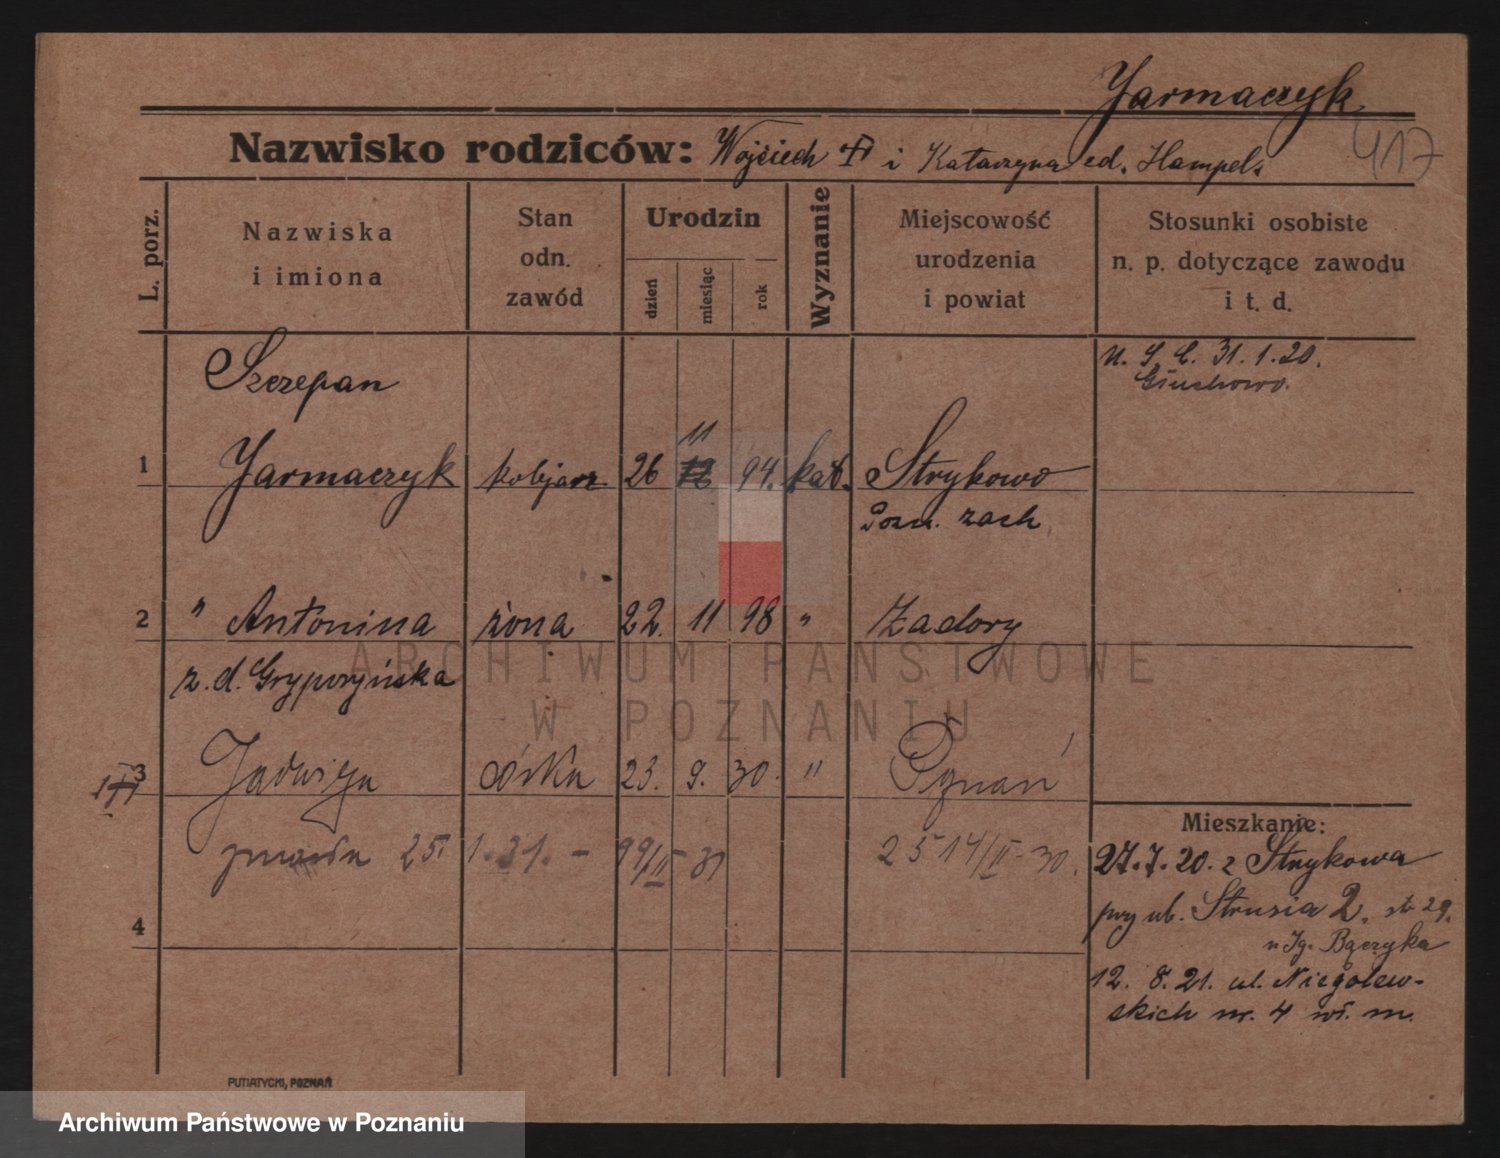 Jarmaczyk
417
Nazwisko rodziców: Wojciech i Katarzyna z d. Hampel.
L. porz.
Nazwiska
i imiona
Stan
odn.
zawód
Urodzin
dzień
miesiąc
rok
Wyznanie
Miejscowość
urodzenia
i powiat
Stosunki osobiste
n. p. dotyczące zawodu
i t. d.
U. S. C. 31.1.20.
Głuchowo.
Szczepan
11
1 Jarmaczyk kolejarz 26 12 94. kat. Strykowo
Pozn. zach
2 " Antonina żona 22. 11 98 " Zadory
z. d. Grypczyńska
3 Jadwiga córka 23. 9. 30. " Poznań
zmarła 25. 1. 31. –
4
Mieszkanie:
27.7.20. z Strykowa
przy ul. Strusia 2, str 29.
u Ig. Bączyka
12. 8. 21. ul. Niegolew-
skich nr. 4 wł. m.
PUTIATYCKI, POZNAŃ
ARCHIWUM PAŃSTWOWE
W POZNANIU
Archiwum Państwowe w Poznaniu